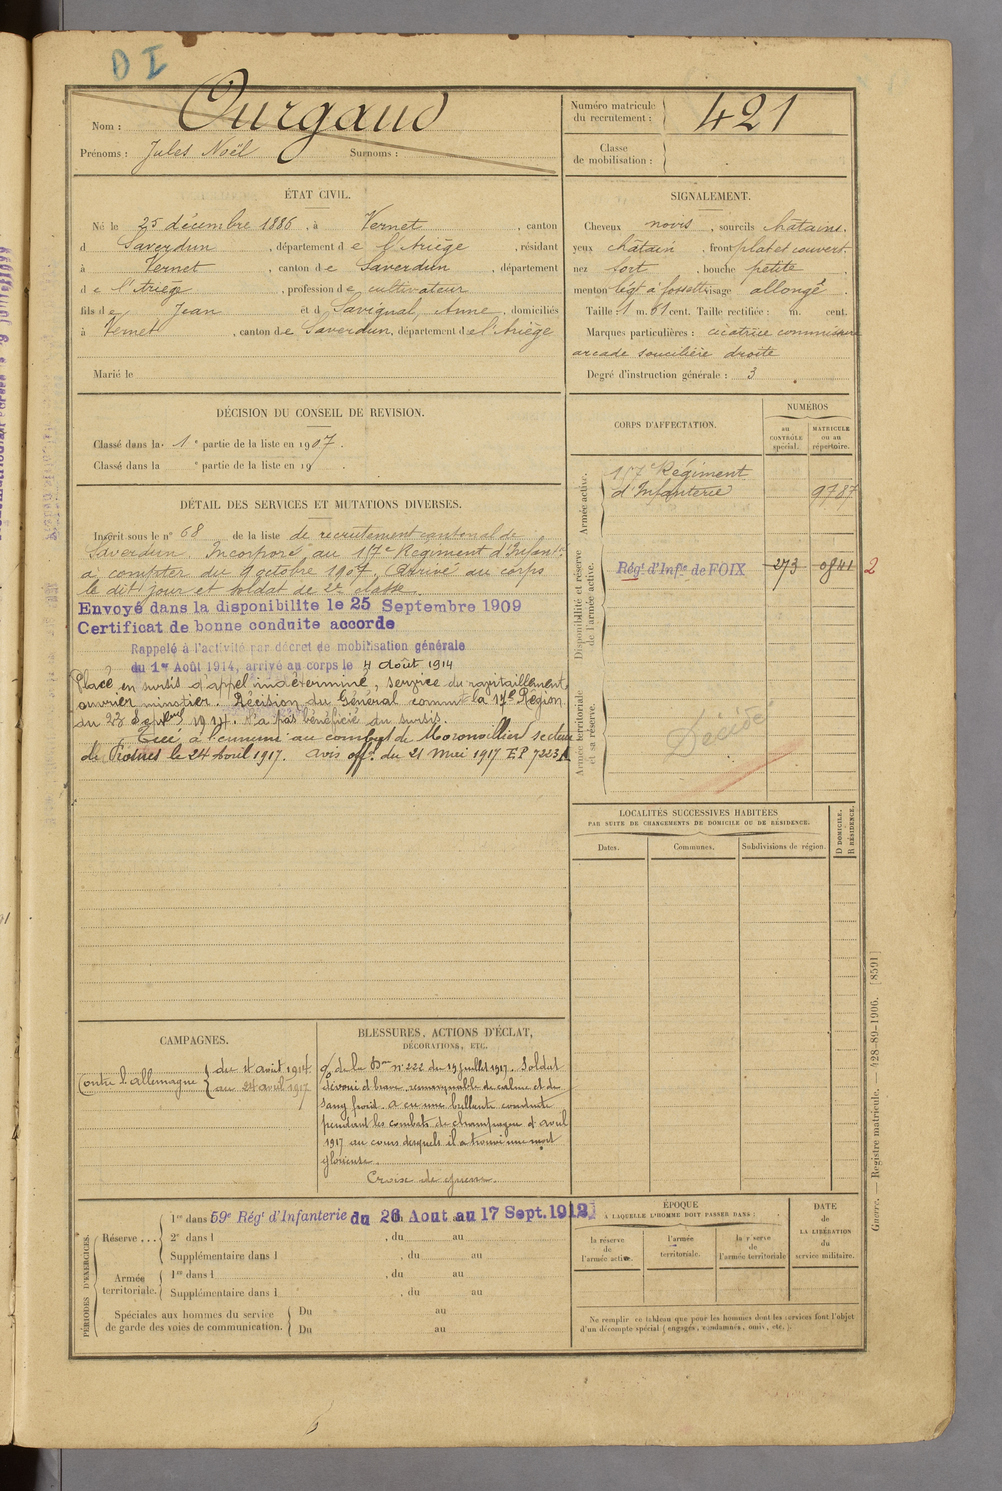 D I
Nom : Ourgaud
Prénoms : Jules Noël Surnoms :
Numéro matricule du recrutement : 421
Classe de mobilisation :
ÉTAT CIVIL.
Né le 25 décembre 1886, à Vernet, canton
d Saverdun, département de l'Ariège, résidant
à Vernet, canton de Saverdun, département
de l'Ariège, profession de cultivateur
fils de Jean et d Savignal, Anne, domiciliés
à Vernet, canton de Saverdun, département de l'Ariège
Marié le
SIGNALEMENT.
Cheveux noirs, sourcils châtains,
yeux châtain, front plat et couvert
nez fort, bouche petite
menton légt à fossette visage allongé.
Taille : 1 m. 61 cent. Taille rectifiée : m. cent.
Marques particulières : cicatrice commissure
arcade sourcilière droite
Degré d'instruction générale : 3
DÉCISION DU CONSEIL DE REVISION.
Classé dans la 1e partie de la liste en 1907.
Classé dans la e partie de la liste en 19 .
DÉTAIL DES SERVICES ET MUTATIONS DIVERSES.
Inscrit sous le n° 68 de la liste de recrutement cantonal de
Saverdun. Incorporé au 17e Régiment d'Infantie
à compter du 9 octobre 1907. Arrivé au corps
le dit jour et soldat de 2e classe.
Envoyé dans la disponibilite le 25 Septembre 1909
Certificat de bonne conduite accorde
Rappelé à l'activité par décret de mobilisation générale
du 1er Août 1914, arrivé au corps le 4 Août 1914
Placé en sursis d'appel indéterminé, service du ravitaillement,
ouvrier minotier. Décision du Général commt la 17e Région
du 23 Septbre 1914. N'a pas bénéficié du sursis.
Tué à l'ennemi au combat de Moronvilliers secteur
de le 24 Avril 1917. Avis offel du 21 Mai 1917 E.P 7223
CORPS D'AFFECTATION.
NUMÉROS
au CONTRÔLE spécial.
MATRICULE ou au répertoire.
Armée active.
17e Régiment
d'Infanterie 9787
Disponibilité et réserve de l'armée active.
Régt d'Infie de FOIX 273 0841 2
Armée territoriale et sa réserve.
Décédé
LOCALITÉS SUCCESSIVES HABITÉES
PAR SUITE DE CHANGEMENTS DE DOMICILE OU DE RÉSIDENCE.
Dates. Communes. Subdivisions de région. D DOMICILE. R RÉSIDENCE.
CAMPAGNES.
Contre l'allemagne { du 4 août 1914
au 24 avril 1917
BLESSURES, ACTIONS D'ÉCLAT,
DÉCORATIONS, ETC.
% de la Don n° 222 du 19 juillet 1917. Soldat
dévoué et brave, remarquable de calme et de
sang froid. a eu une brillante conduite
pendant les combats de champagne d'avril
1917 au cours desquels il a trouvé une mort
glorieuse.
Croix de guerre.
PÉRIODES D'EXERCICES.
Réserve ...
1re dans 59e Régt d'Infanterie du 26 Aout au 17 Sept. 1912
2e dans l , du au
Supplémentaire dans l , du au
Armée territoriale.
1re dans l , du au
Supplémentaire dans l , du au
Spéciales aux hommes du service de garde des voies de communication.
Du au
Du au
ÉPOQUE
À LAQUELLE L'HOMME DOIT PASSER DANS :
la réserve de l'armée active.
l'armée territoriale.
la réserve de l'armée territoriale
DATE de LA LIBÉRATION du service militaire.
Ne remplir ce tableau que pour les hommes dont les services font l'objet
d'un décompte spécial (engagés, condamnés, omis, etc.).
Guerre. — Registre matricule. — 428-89-1906. [8591]